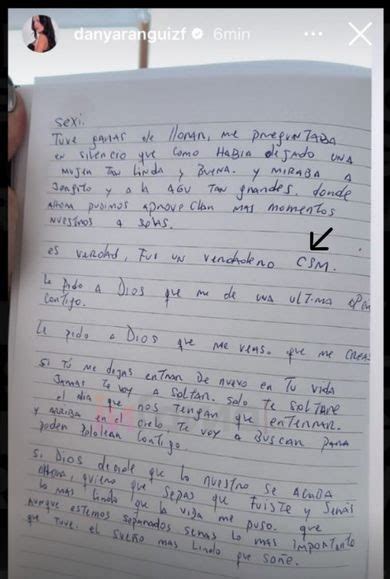 danyaranguizf 6min
sexi.
Tuve ganas de llorar, me preguntaba
en silencio que como había dejado una
mujer tan linda y buena. y miraba a
Jorgito y a la Agu tan grandes. donde
ahora pudimos aprovechar más momentos
nuestros a solas.
es verdad, Fui un verdadero CSM.
Le pido a Dios que me de una ultima
contigo.
Le pido a Dios que me veas. que me creas
si tú me dejas entrar de nuevo en tu vida
Jamas te voy a soltar. solo te soltare
el día que nos tengan que enterrar.
y arriba en el cielo te voy a buscar para
poder pololear contigo.
si Dios decide que lo nuestro se acaba
ahora, quiero que sepas que fuiste y serás
lo mas lindo que la vida me puso. que
aunque estemos separados seras lo mas importante
que tuve. el sueño mas lindo que soñe.